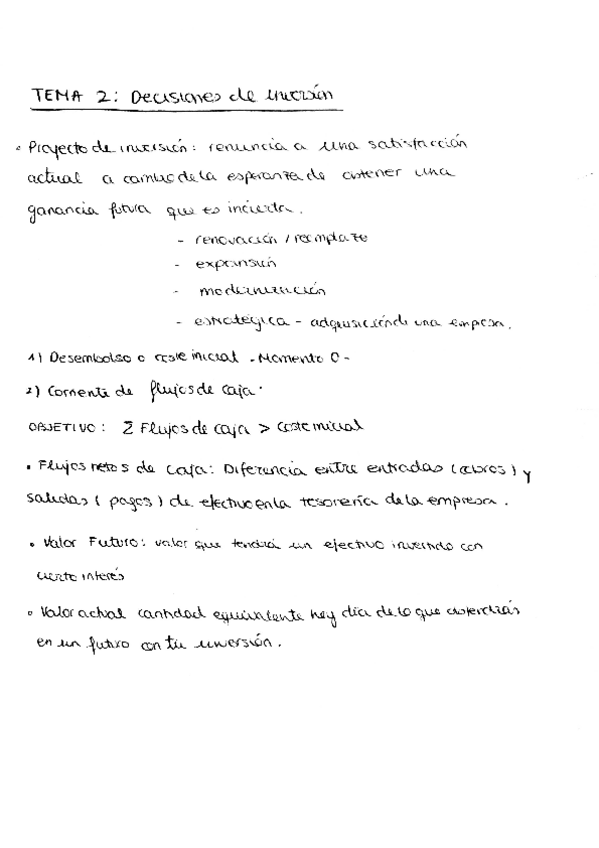 TEMA 2: Decisiones de inversión
• Proyecto de inversión: renuncia a una satisfacción
actual a cambio de la esperanza de obtener una
ganancia futura que es incierta.
- renovación / reemplazo
- expansión
- modernización
- estratégica - adquisición de una empresa.
1) Desembolso o coste inicial - Momento 0 -
2) Corriente de flujos de caja.
OBJETIVO: Σ Flujos de caja > coste inicial
• Flujos netos de caja: Diferencia entre entradas (cobros) y
salidas (pagos) de efectivo en la tesorería de la empresa.
• Valor Futuro: valor que tendrá un efectivo invertido con
cierto interés
• Valor actual cantidad equivalente hoy día de lo que obtendrás
en un futuro con tu inversión.